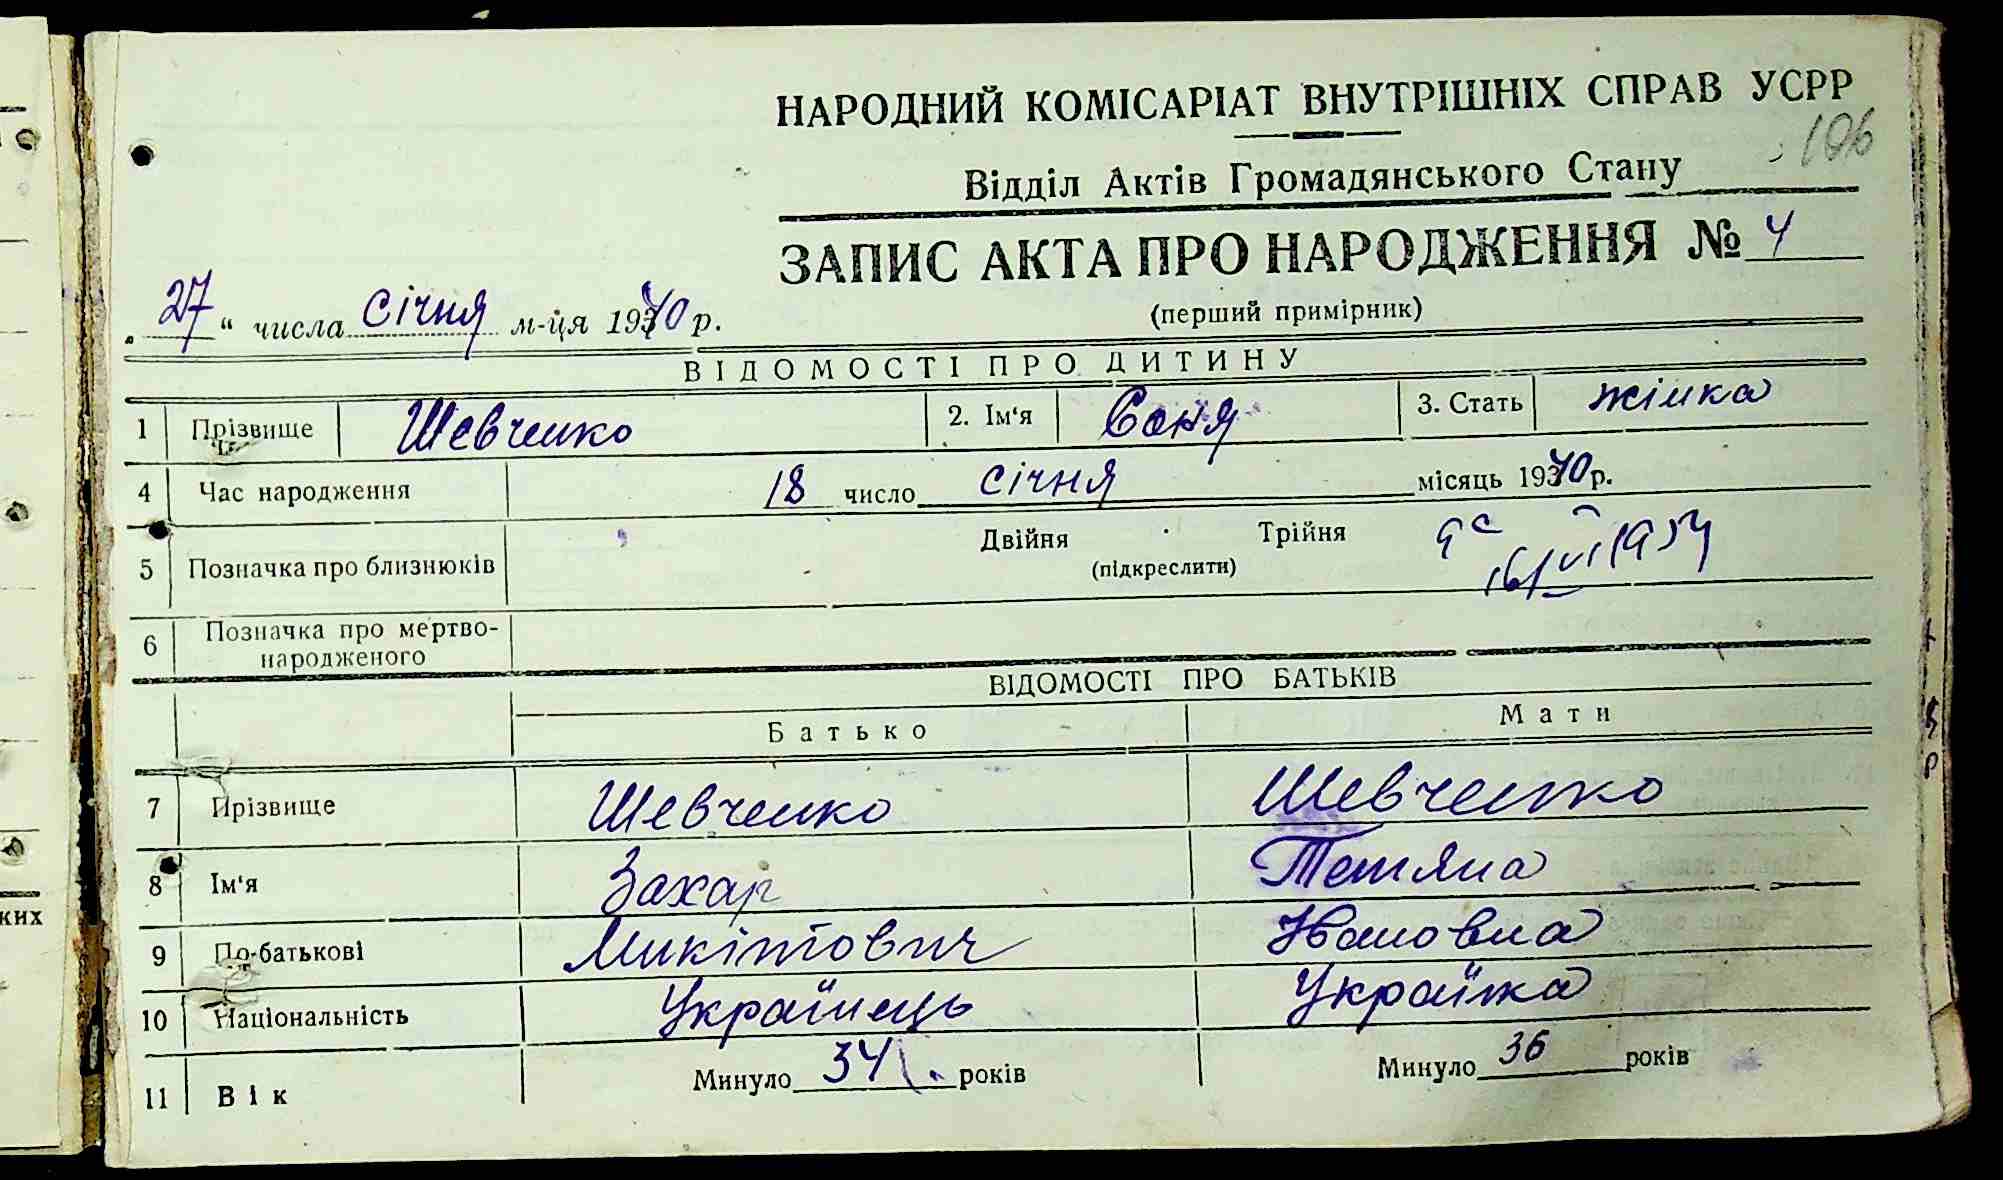 НАРОДНИЙ КОМІСАРІАТ ВНУТРІШНІХ СПРАВ УСРР
106
Відділ Актів Громадянського Стану
ЗАПИС АКТА ПРО НАРОДЖЕННЯ № 4
(перший примірник)
„27“ числа січня м-ця 1940 р.
ВІДОМОСТІ ПРО ДИТИНУ
1 Прізвище Шевченко 2. Ім‘я Соня 3. Стать жінка
4 Час народження 18 число січня місяць 1940 р.
5 Позначка про близнюків Двійня Трійня
(підкреслити)
16/VI 1954
6 Позначка про мертво-
народженого
ВІДОМОСТІ ПРО БАТЬКІВ
Батько Мати
7 Прізвище Шевченко Шевченко
8 Ім‘я Захар Тетяна
9 По-батькові Микітович Івановна
10 Національність Українець Українка
11 Вік Минуло 34 років Минуло 36 років
ких